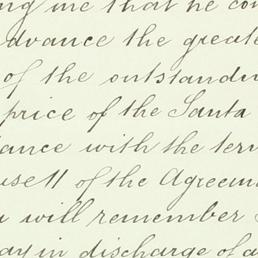 ng me that he con
advance the greate
of the outstandin
price of the Santa
dance with the ter
use 11 of the Agreem
will remember
ay in discharge of a